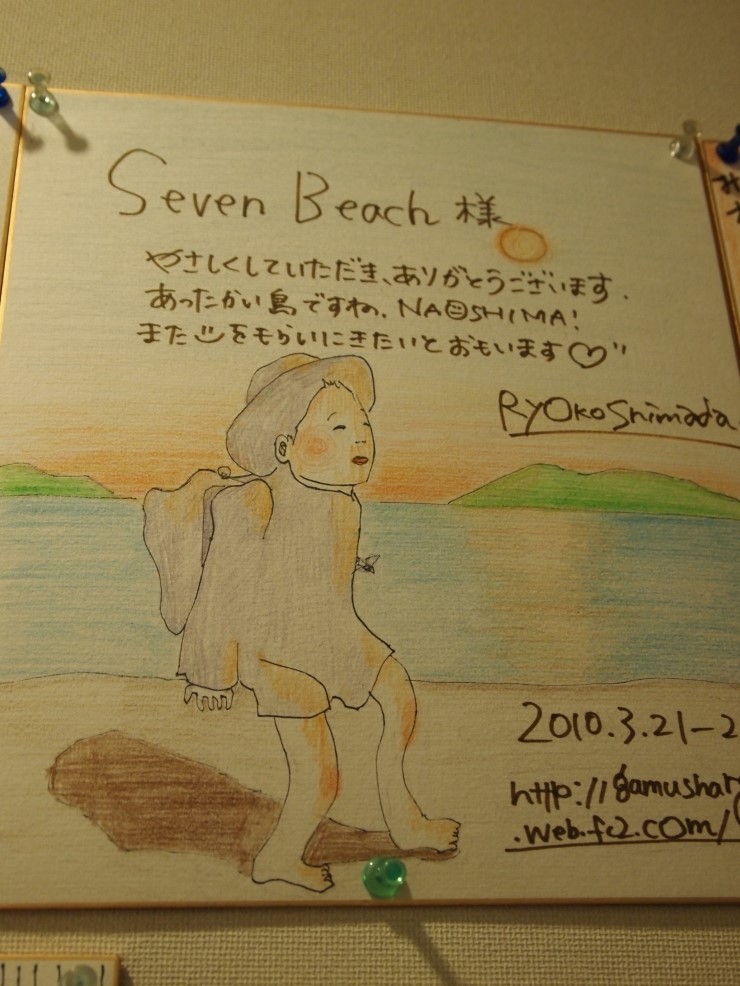 Seven Beach 様
やさしくしていただき、ありがとうございます.
あったかい島ですね. NAOSHIMA!
また をもらいにきたいとおもいます♡"
RYOKO Shimada.
2010.3.21-2
http://gamushar
.web.fc2.com/